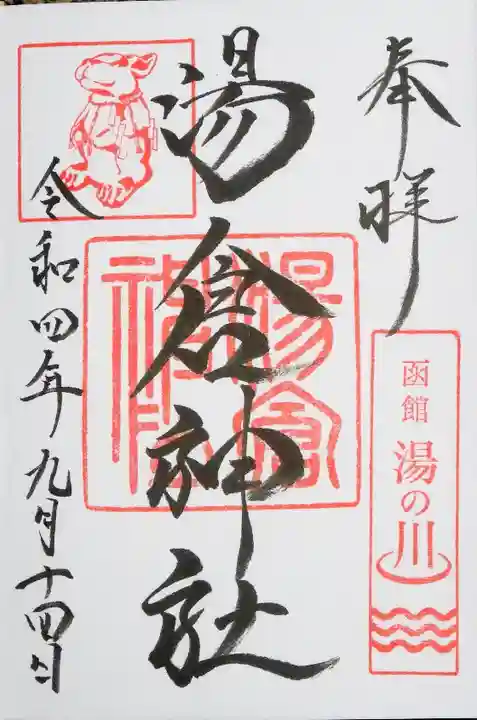 奉拝
函館 湯の川
湯倉神社
湯倉神社
令和四年九月十四日